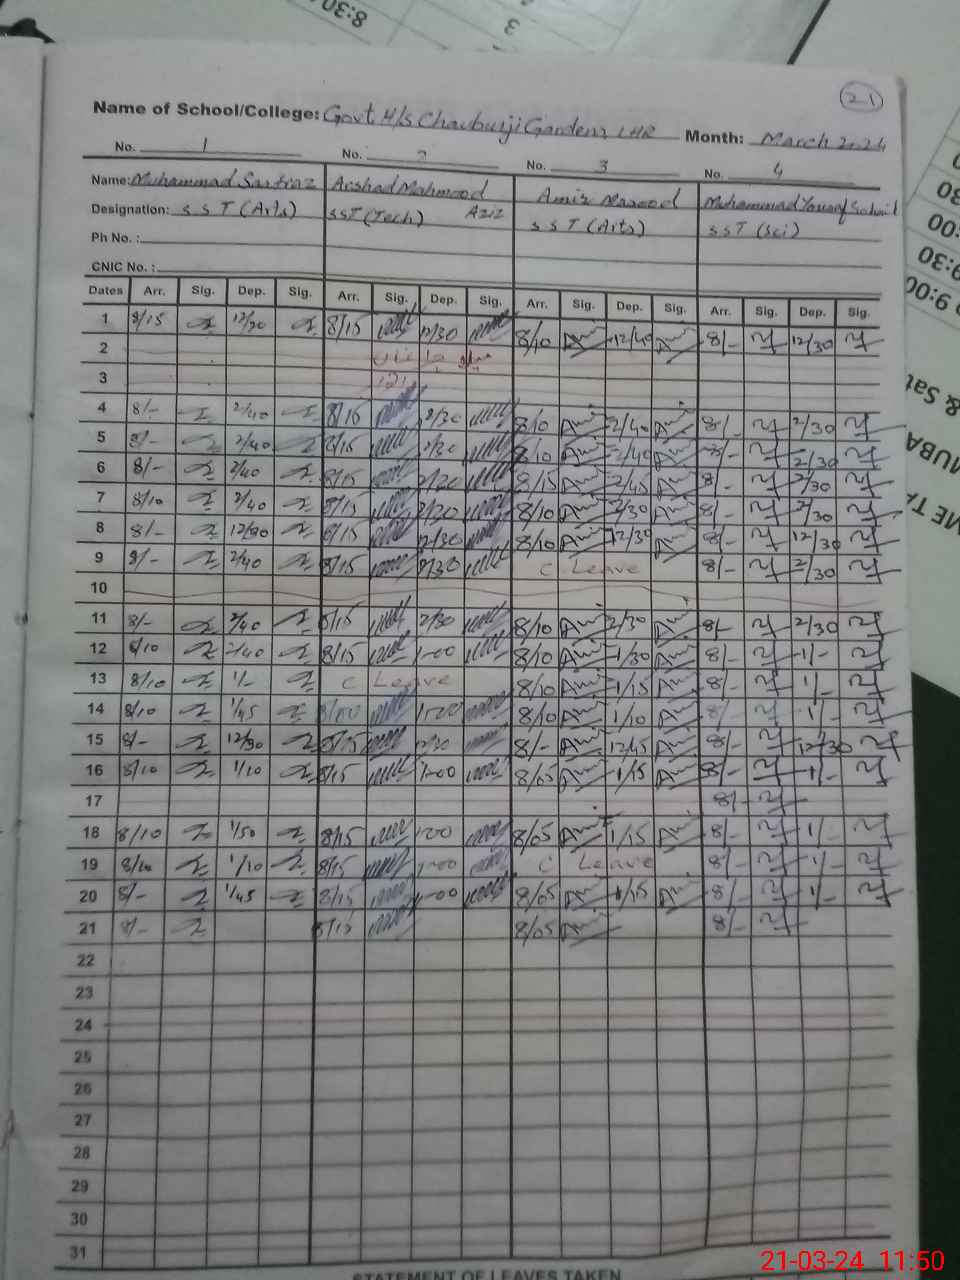 8:30
3
21
Name of School/College: Govt H/S Chauburji Gardens LHR Month: March 2024
No. 1 No. 2 No. 3 No. 4
Name: Muhammad Sarfraz Arshad Mahmood Amir Masood Muhammad Yousaf Sohail
Designation: SST (Arts) SST (Tech) Aziz SST (Arts) SST (Sci)
Ph No. :
CNIC No. :
Dates Arr. Sig. Dep. Sig. Arr. Sig. Dep. Sig. Arr. Sig. Dep. Sig. Arr. Sig. Dep. Sig.
1 8/15 12/30 8/15 12/30 8/10 12/40 8/- 12/30
2
3
4 8/- 2/40 8/15 2/30 8/10 2/40 8/- 2/30
5 8/- 2/40 8/15 2/30 8/10 2/40 8/- 2/30
6 8/- 2/40 8/15 2/30 8/15 2/45 8/- 2/30
7 8/10 2/40 8/15 2/30 8/10 2/30 8/- 2/30
8 8/- 12/30 8/15 12/30 8/10 12/30 8/- 12/30
9 8/- 2/40 8/15 2/30 C Leave 8/- 2/30
10
11 8/- 2/40 8/15 2/30 8/10 2/30 8/- 2/30
12 8/10 2/40 8/15 1-00 8/10 1/30 8/- 1/-
13 8/10 1/- C Leave 8/10 1/15 8/- 1/-
14 8/10 1/45 8/00 1-00 8/10 1/10 8/- 1/-
15 8/- 12/30 8/15 12/30 8/- 12/45 8/- 12/30
16 8/10 1/10 8/15 1-00 8/05 1/15 8/- 1/-
17 8/-
18 8/10 1/50 8/15 1-00 8/05 1/15 8/- 1/-
19 8/10 1/10 8/15 1-00 C Leave 8/- 1/-
20 8/- 1/45 8/15 1-00 8/05 1/15 8/- 1/-
21 8/- 8/15 8/05 8/-
22
23
24
25
26
27
28
29
30
31
STATEMENT OF LEAVES TAKEN
21-03-24 11:50